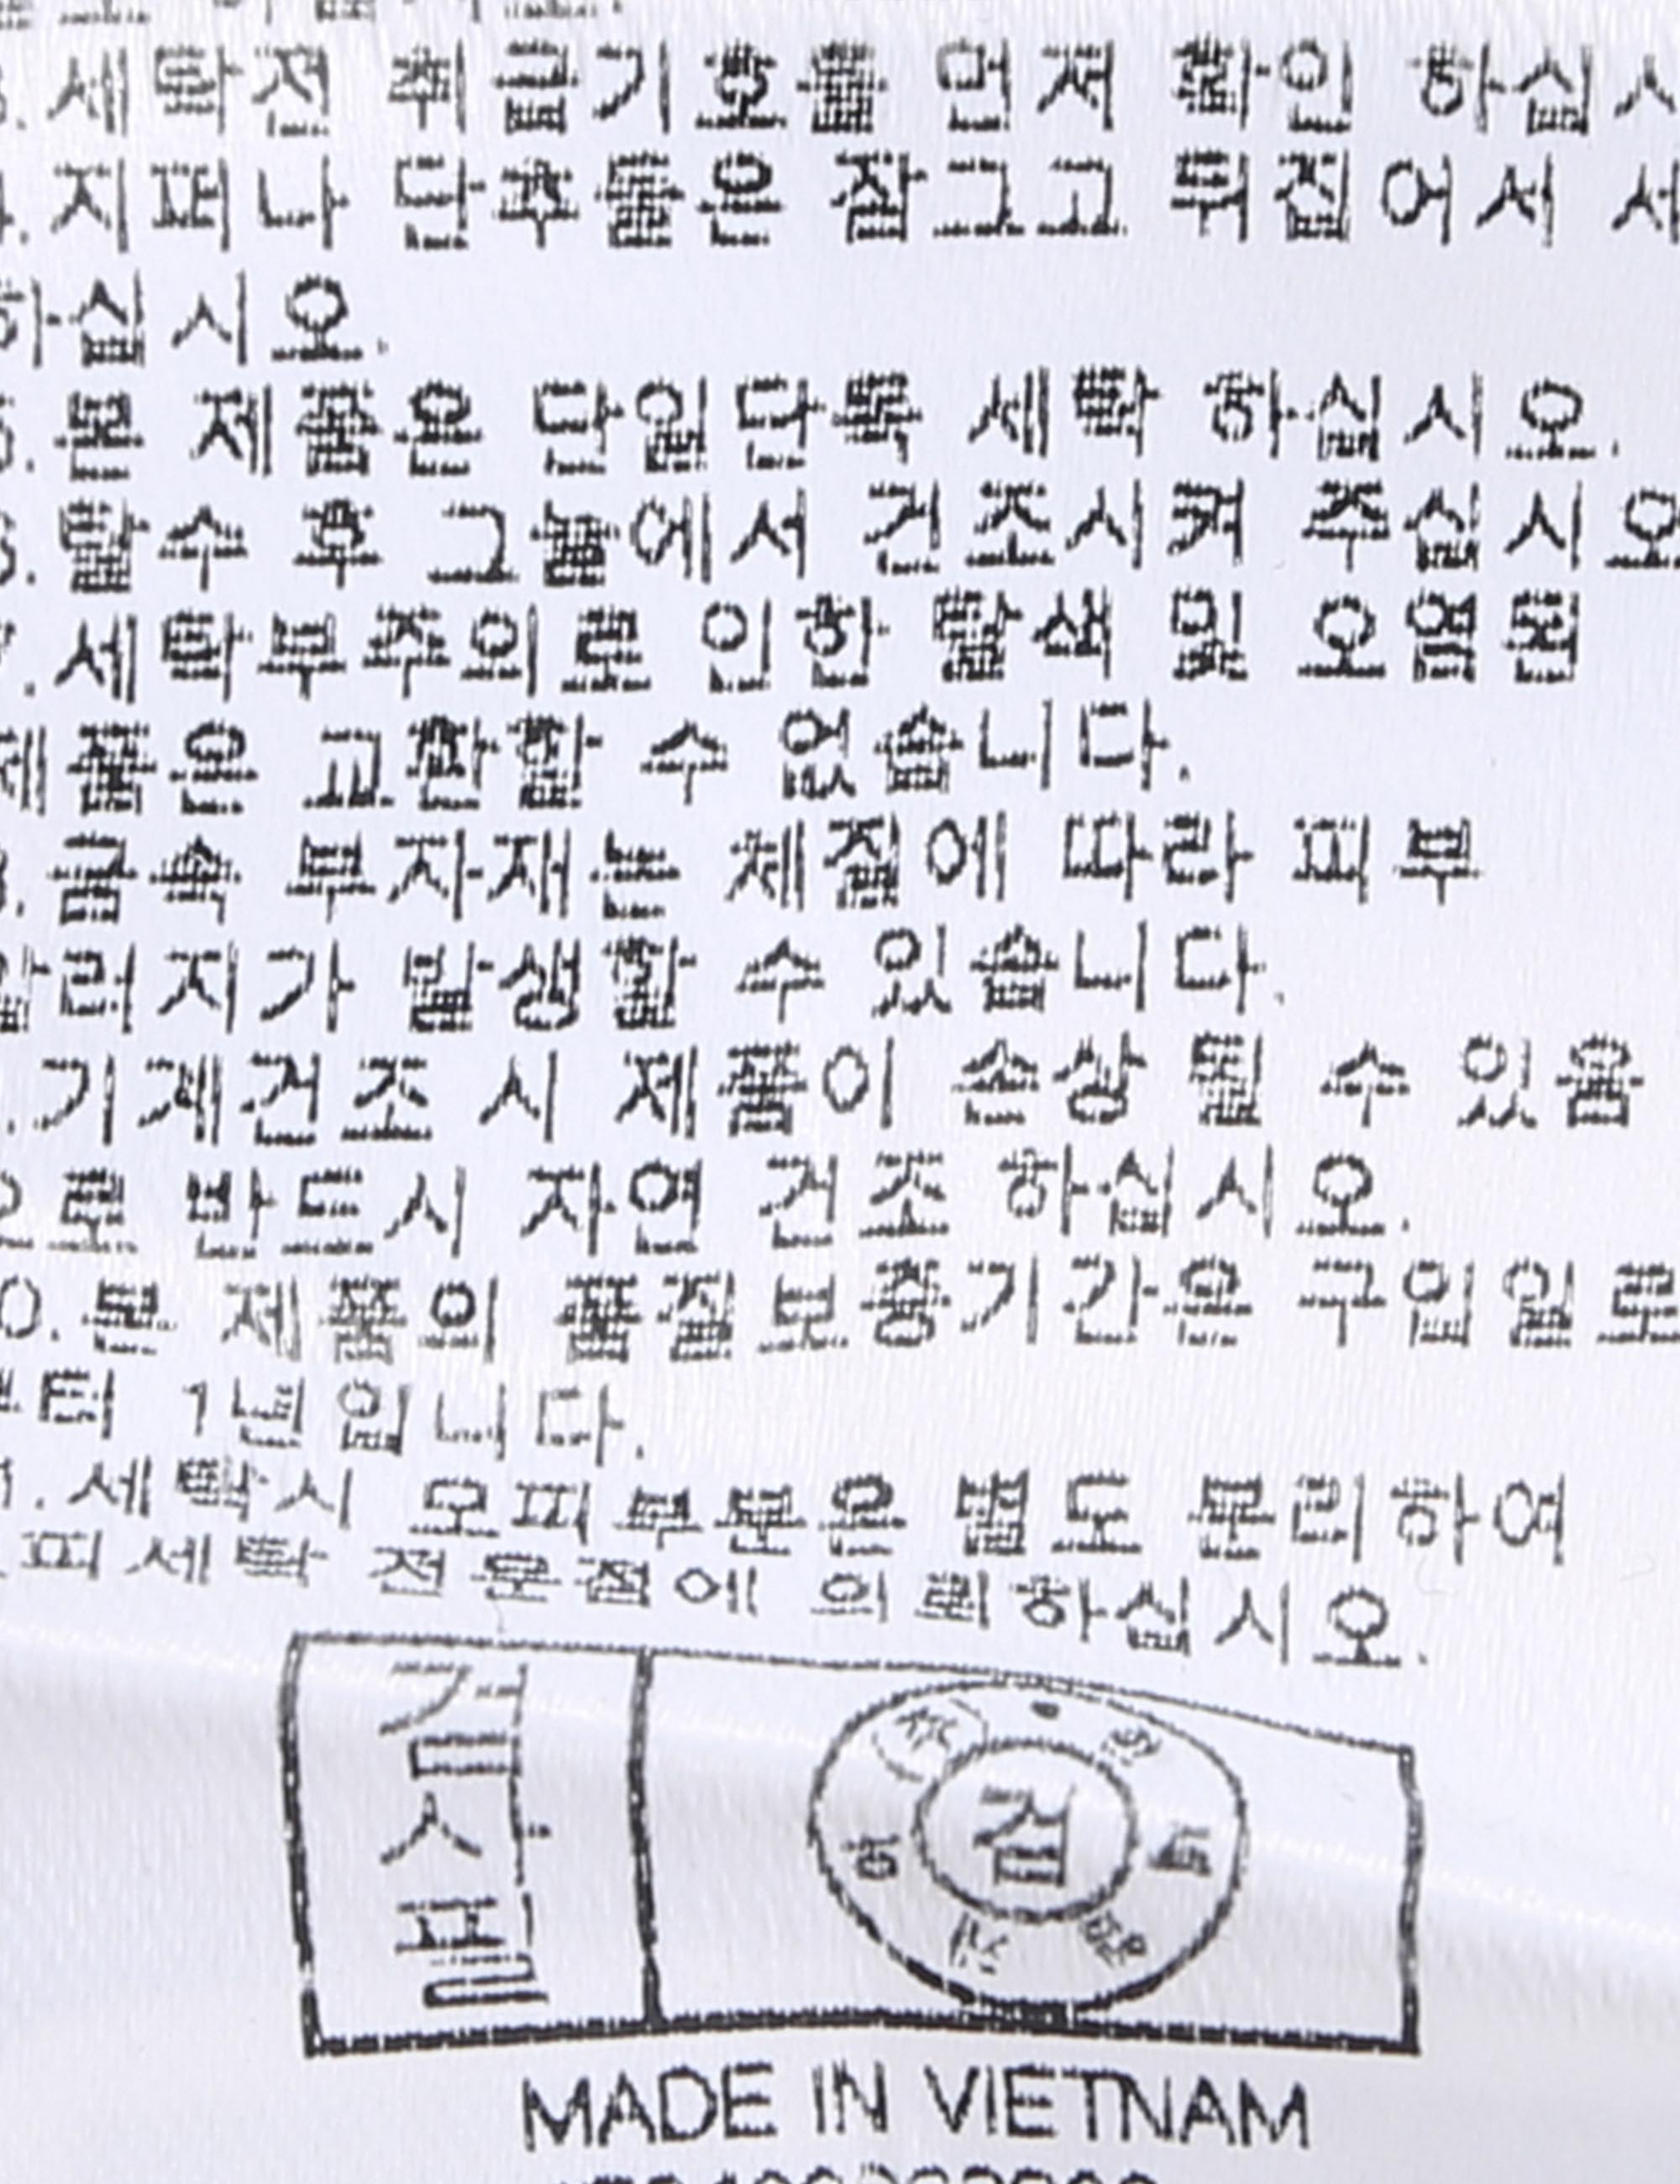 3.세탁전 취급기호를 먼저 확인 하십시
4.지퍼나 단추들은 잠그고 뒤집어서 세
하십시오.
5.본 제품은 단일단독 세탁 하십시오.
6.탈수 후 그늘에서 건조시켜 주십시오
7.세탁부주의로 인한 탈색 및 오염된
제품은 교환할 수 없습니다.
8.금속 부자재는 체질에 따라 피부
알러지가 발생할 수 있습니다.
.기계건조 시 제품이 손상 될 수 있음
으로 반드시 자연 건조 하십시오.
0.본 제품의 품질보증기간은 구입일로
부터 1년입니다.
1.세탁시 모피부분은 별도 분리하여
모피세탁 전문점에 의뢰하십시오.
검사필
검
MADE IN VIETNAM